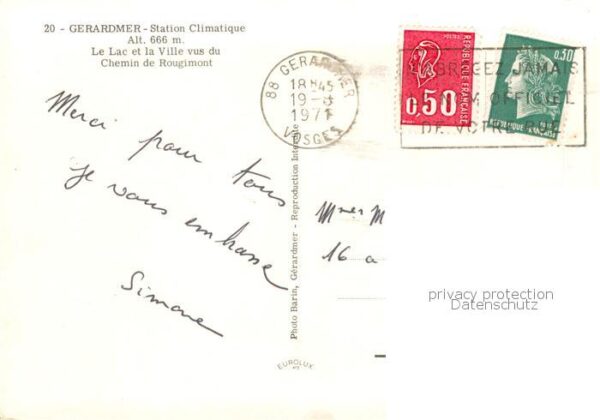 20 - GERARDMER - Station Climatique
Alt. 666 m.
Le Lac et la Ville vus du
Chemin de Rougimont
88 GERARDMER
18H45
19-8
1971
VOSGES
POSTES
0,50
REPUBLIQUE FRANÇAISE
0,30
REPUBLIQUE FRANÇAISE
ABREGEZ JAMAIS
NOM OFFICIEL
DE VOTRE
Merci pour tous
je vous embrasse
Simone
Photo Barin, Gérardmer - Reproduction Interdite
Mmes M
16 a
EUROLUX
privacy protection
Datenschutz